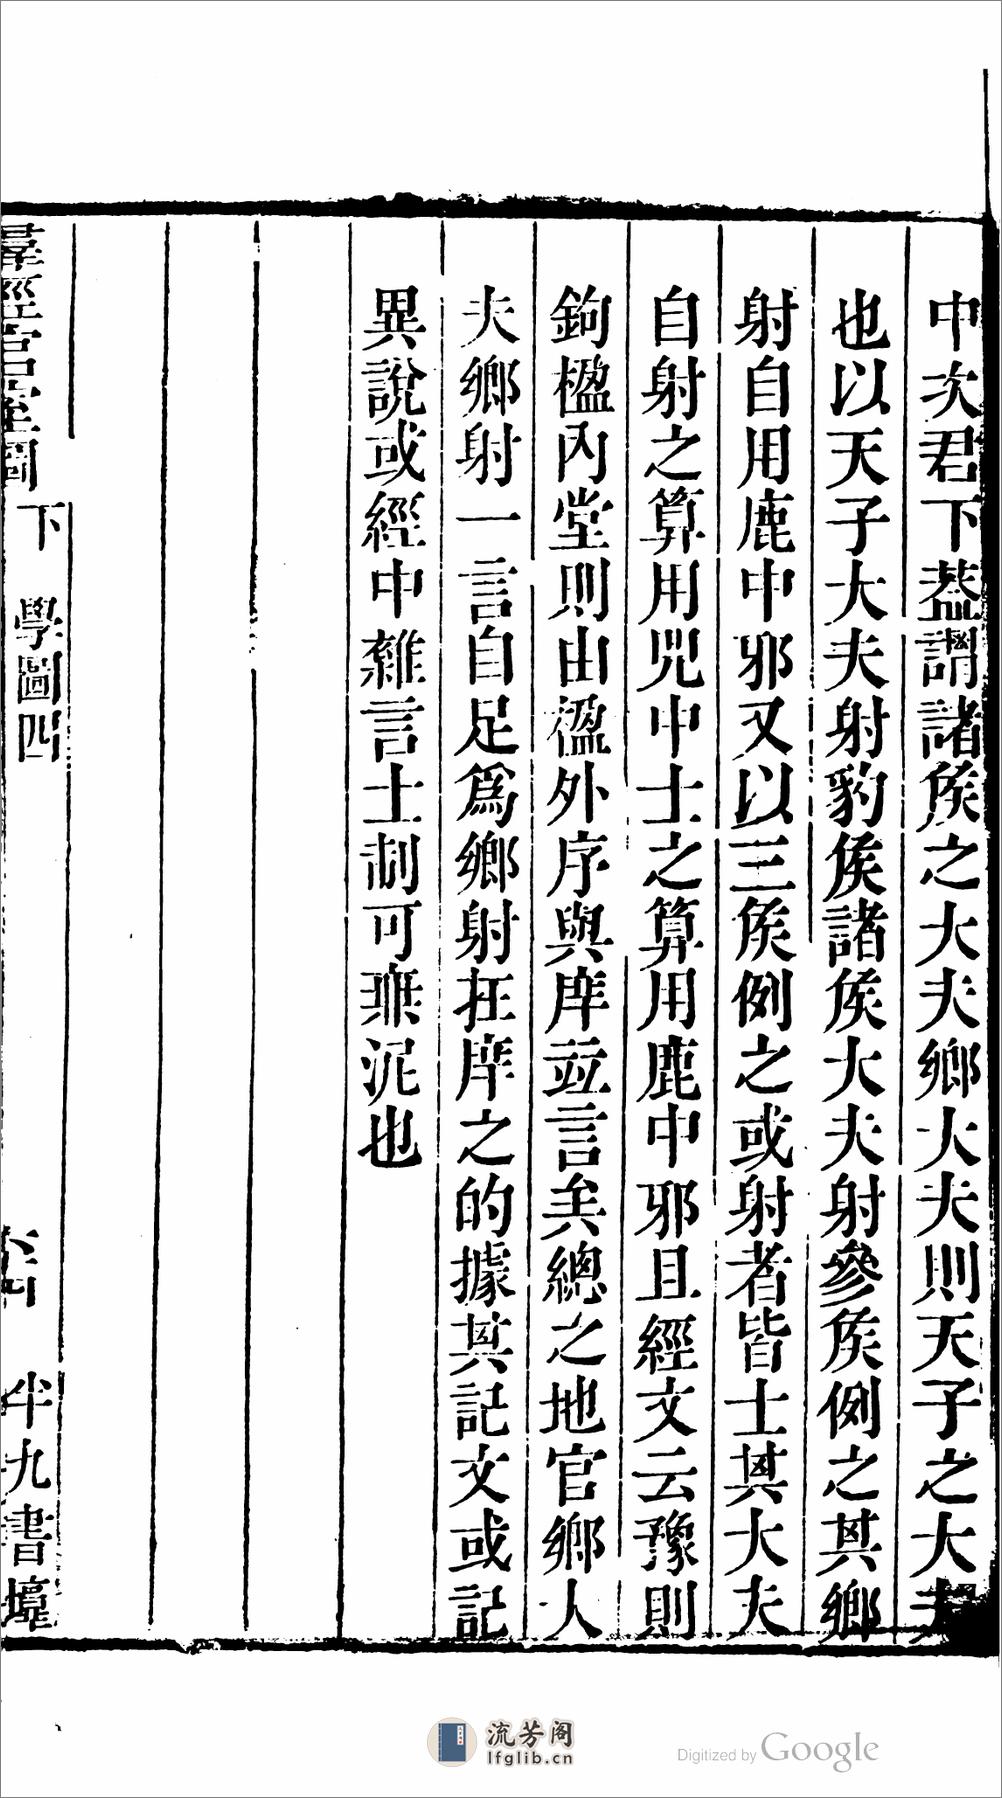 中次君下蓋謂諸侯之大夫鄉大夫則天子之大夫
也以天子大夫射豹侯諸侯大夫射參侯例之其鄉
射自用鹿中邪又以三侯例之或射者皆士其大夫
自射之算用兕中士之算用鹿中邪且經文云豫則
鉤楹內堂則由楹外序與庠竝言矣總之地官鄉人
夫鄉射一言自足爲鄉射在庠之的據其記文或記
異說或經中雜言士制可無泥也
羣經宮室圖 下 學圖四 半九書塾
流芳阁
lfglib.cn
Digitized by Google